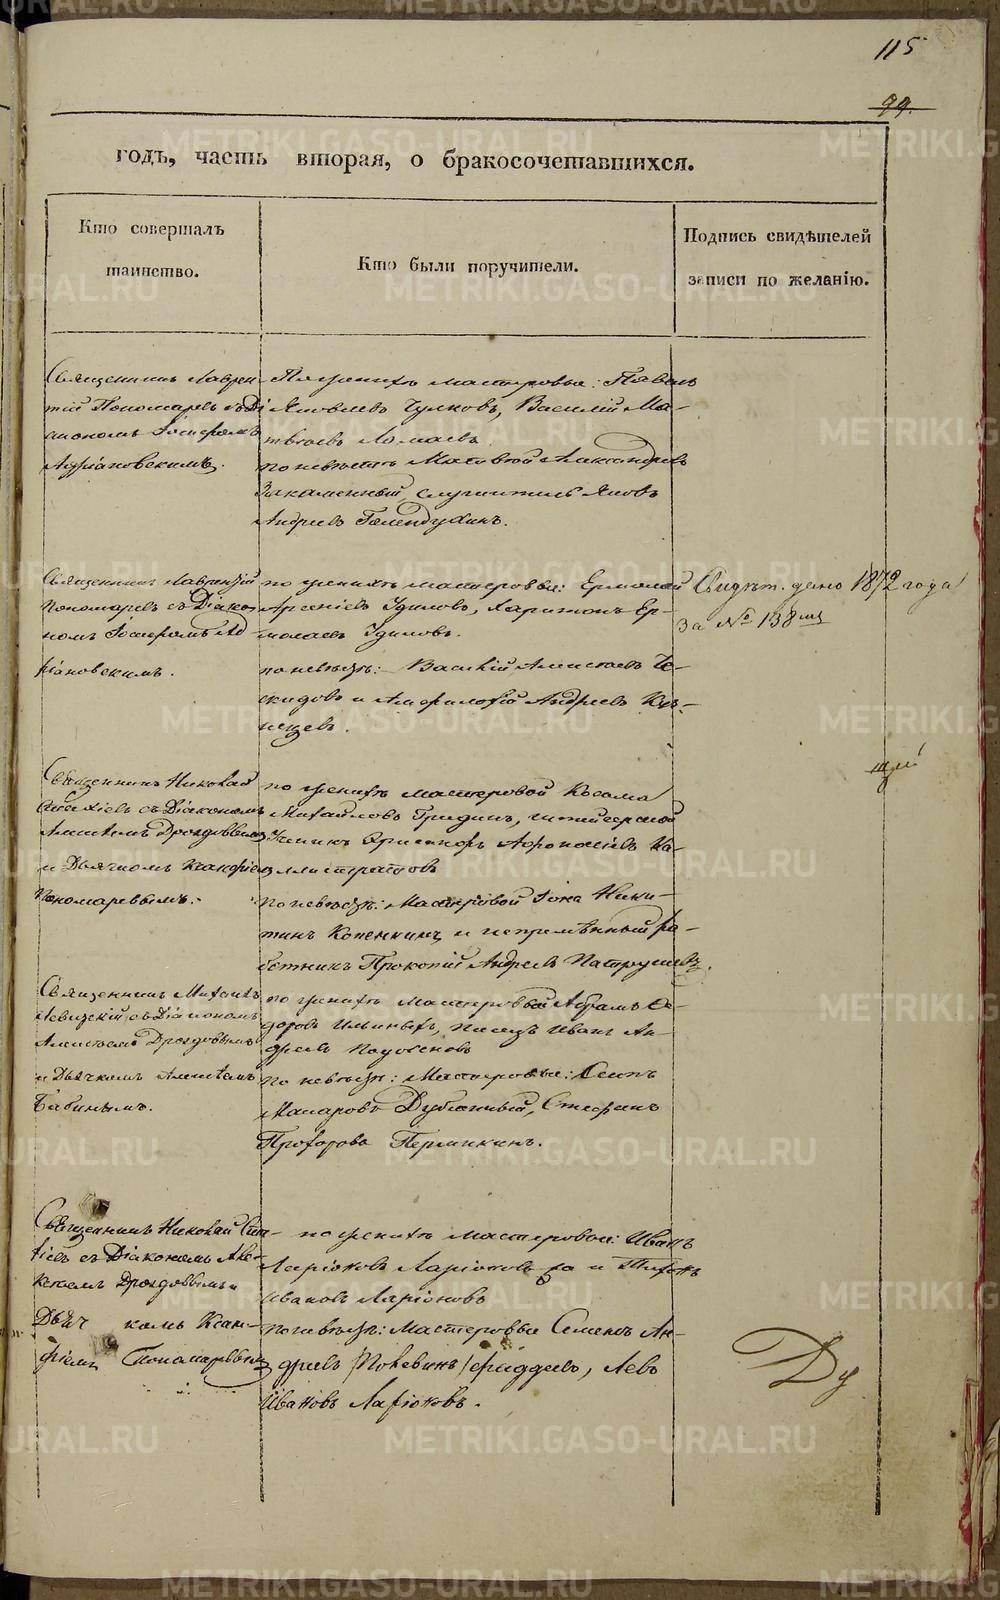 115
99.
годъ, часть вторая, о бракосочетавшихся.
Кто совершалъ
таинство.
Кто были поручители.
Подпись свидѣтелей
записи по желанію.
Священникъ Лаврен-
тій Пономаревъ съ Ді
акономъ Іосифомъ
Адріановскимъ.
По женихѣ мастеровые: Павелъ
Яковлевъ Чулковъ, Василій Ма-
твѣевъ Ломаевъ.
по невѣстѣ Матвѣй Александровъ
Закаменный, служитель Яковъ
Андреевъ Голендухинъ.
Священникъ Лаврентій
Пономаревъ съ Діако-
номъ Іосифомъ Ад
ріановскимъ.
по женихѣ мастеровые: Ермолай
Арсеніевъ Удиловъ, Харитонъ Ер-
молаевъ Удиловъ.
по невѣстѣ: Василій Алексѣевъ
и Амфилохій Андреевъ Куз-
нецовъ.
Свидѣт. дано 1872 года
за № 138
Священникъ Николай
съ Діакономъ
Алексѣемъ Дроздовымъ
и Дьячкомъ Ксанфіемъ
Пономаревымъ.
по женихѣ мастеровой Косьма
Михайловъ Гридинъ,
Ученикъ Хрисанфъ Афонасіевъ Ка-
ллистратовъ
по невѣстѣ: Мастеровой Іона Ники-
тинъ Копенкинъ и непремѣнный ра-
ботникъ Прокопій Андреевъ Патрушевъ.
Священникъ Михаилъ
Левицкій съ Діакономъ
Алексѣемъ Дроздовымъ
и Дьячкомъ Алексѣемъ
Бабинымъ.
по женихѣ Мастеровые Абрамъ Ѳе-
доровъ Ильиныхъ, писецъ Иванъ Ан-
дреевъ
по невѣстѣ: Мастеровые: Осипъ
Макаровъ Стефанъ
Прохоровъ Пермикинъ.
Священникъ Николай
съ Діакономъ Але-
ксѣемъ Дроздовымъ и
Дьяч комъ Ксан-
фіемъ Пономаревымъ
по женихѣ мастеровой: Иванъ
Ларіоновъ Ларіоновъ и Тихонъ
Ивановъ Ларіоновъ
по невѣстѣ: Мастеровые Семенъ Ан-
дреевъ Левъ
Ивановъ Ларіоновъ.
METRIKI.GASO-URAL.RU